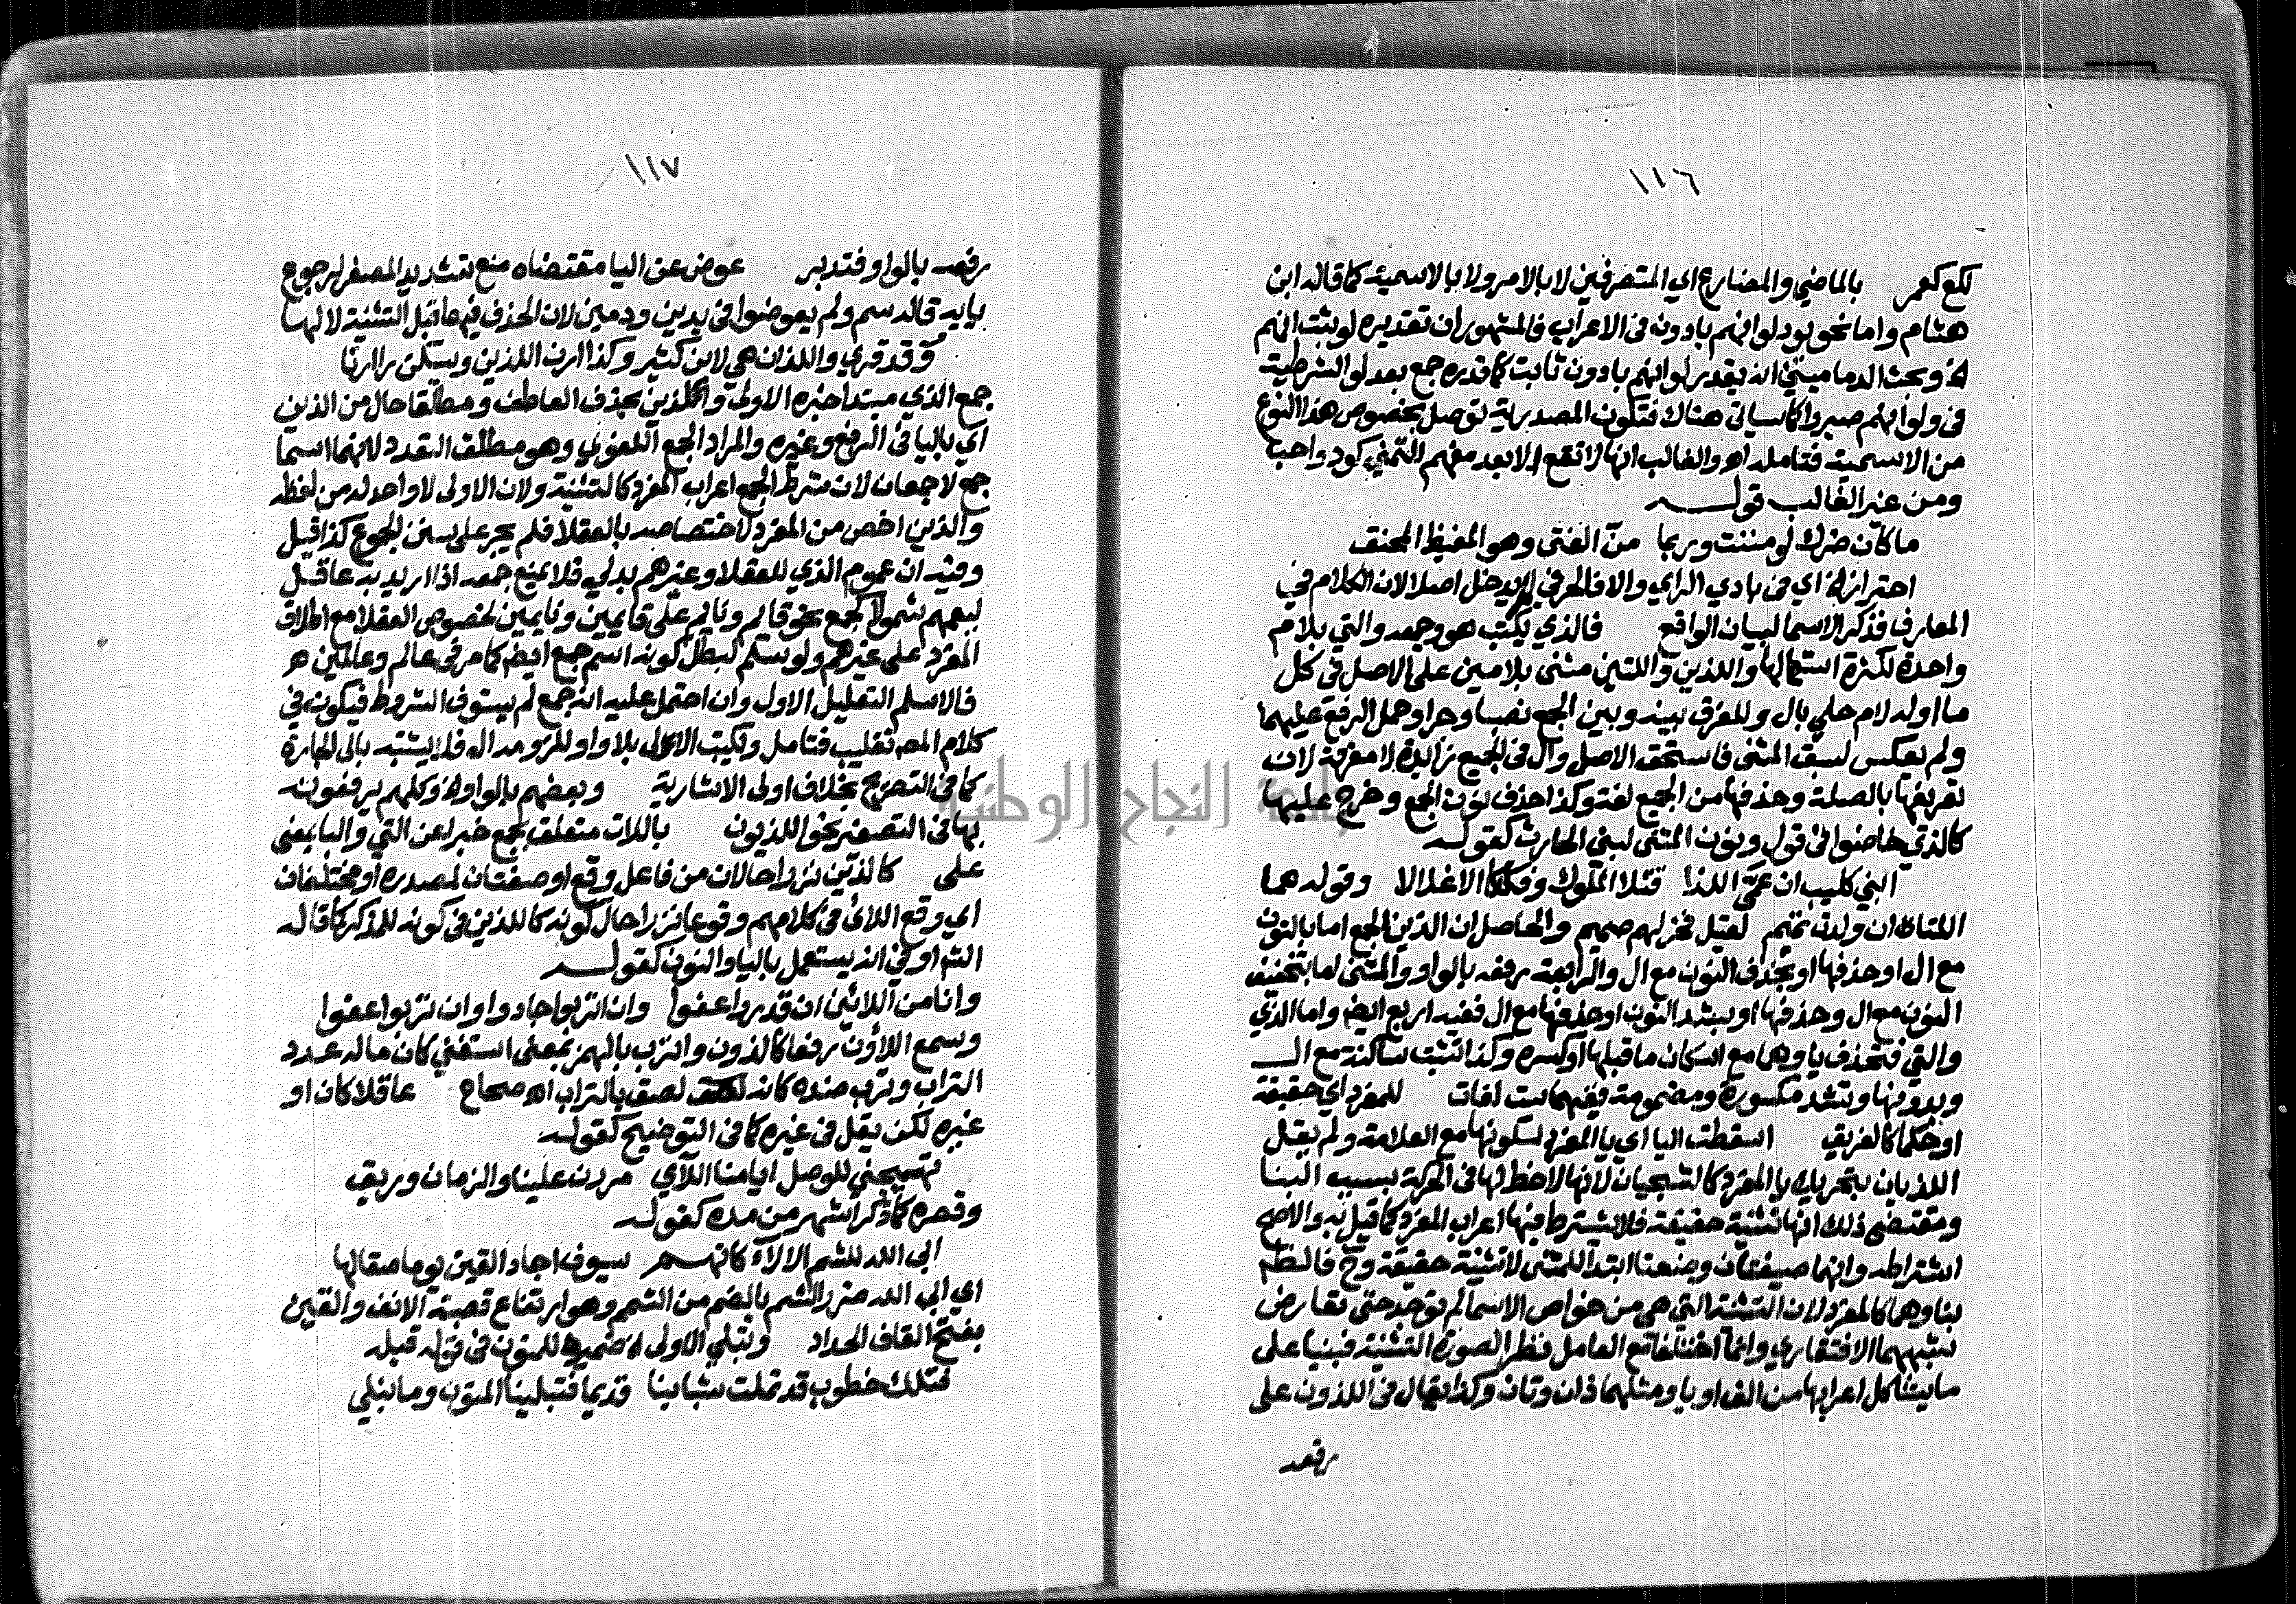 ١١٦
لكع كعمر بالماضي والمضارع اي المتصرفين لا بالامر ولا بالاسمية كما قاله ابن
هشام واما نحو يود لو انهم بادون في الاعراب فالمشهور ان تقديره لو ثبت انهم
اه وبحث الدماميني انه يقدر لو انهم بادون ثابت كما قدره جمع بعد لو الشرطية
في ولو انهم صبروا كما سياتي هناك فتكون المصدرية توصل بخصوص هذا النوع
من الاسمية فتامله اه والغالب انها لا تقع الا بعد مفهم التمني كود واحب
ومن غير الغالب قولـــه
ما كان ضرك لو مننت وربما منّ الفتى وهو المغيظ المحنق
احترازا اي في بادي الراي والا فالحرفي لم يدخل اصلا لان الكلام في
المعارف فذكر الاسما لبيان الواقع فالذي يكتب هو وجمعه والتي بلام
واحدة لكثرة استعمالها واللذين واللتين مثنى بلامين على الاصل في كل
ما اوله لام حلي بال وللفرق بينه وبين الجمع نصبا وجرا وحمل الرفع عليهما
ولم يعكس لسبق المثنى فاستحق الاصل وال في الجميع زايدة لا معرفة لان
تعريفها بالصلة وحذفها من الجميع لغة وكذا حذف نون الجمع وخرج عليها
كالذي خاضوا في قول ونون المثنى لبني الحارث كقولـه
ابني كليب ان عمّيّ اللذا قتلا الملوك وفككا الاغلالا وقوله هما
اللتا لو ان ولدت تميم لقيل فخر لهم صميم والحاصل ان الذين الجمع اما بالنون
مع ال او حذفها او بحذف النون مع ال والرابعة رفعه بالواو والمثنى اما بتخفيف
النون مع ال وحذفها او بشد النون او حذفها مع ال ففيه اربع ايضا واما الذي
والتي فتحذف ياوهما مع اسكان ما قبلها او كسره وكذا تثبت ساكنة مع الـ
وبدونها وتشد مكسورة ومضمومة ففيهما ست لغات للمفرد اي حقيقة
او حكما كالفريق اسقطت اليا اي يا المفرد لسكونها مع العلامة ولم يقل
اللذيان بتحريك يا المفرد كالشجيان لانها لاحظ لها في الحركة بسبب البنا
ومقتضى ذلك انها تثنية حقيقة فلا يشترط فيها اعراب المفرد كما قيل به والاصح
اشتراطه وانها صيغتان وضعتا ابتدا للمثنى لا تثنية حقيقة وح فالنظم
بناوهما كالمفرد لان التثنية التي هي من خواص الاسما لم توجد حتى تعارض
شبههما الافتقاري وانما اختلفا مع العامل نظرا لصورة التثنية فبنيا على
ما يشاكل اعرابها من الف او يا ومثلهما ذان وتان وكذا يقال في اللذون على
رفعه
١١٧
رفعه بالواو فتدبر عوض عن اليا مقتضاه منع تشديد المصغر لرجوع
يايه قاله سم ولم يعوضوا في يدين ودمين لان الحذف فيهما قبل التثنية لا لها
وقد قري واللذان هي لابن كثير وكذا ارنا اللذين ويسكن را ارنا
جمع الذي مبتدا خبره الاولى والذين بحذف العاطف ومطلقا حال من الذين
اي باليا في الرفع وغيره والمراد الجمع اللغوي وهو مطلق التعدد لانهما اسما
جمع لا جمعان لان شرط الجمع اعراب المفرد كالتثنية ولان الاولى لا واحد له من لفظه
والذين اخص من المفرد لاختصاصه بالعقلا فلم يجر على سنن الجموع كذا قيل
وفيه ان عموم الذي للعقلا وغيرهم بدلي فلا يمنع جمعه اذا اريد به عاقل
ليعمهم شمولا كجمع نحو قايم ونايم على قايمين ونايمين لخصوص العقلا مع اطلاق
المفرد على غيرهم ولو سلم لبطل كونه اسم جمع ايضا كما مر في عالم وعالمين
فالاسلم التعليل الاول وان احتمل عليه انه جمع لم يستوف الشروط فيكون في
كلام المص تغليب فتامل وتكتب الاولى بلا واو للزومه ال فلا يشتبه بالى الجارة
كما في التصريح بخلاف اولى الاشارية وبعضهم بالواو اه وكلهم يرفعونه
بها في التصغير نحو اللذيون باللات متعلق بجمع خبر عن التي والبا بمعنى
على كالذين نزرا حالان من فاعل وقع او صفتان لمصدره او مختلفان
اي وقع اللائ في كلامهم وقوعا نزرا حال كونه كاللذين في كونه للمذكر كما قاله
الش او في انه يستعمل باليا والنون كقولـــه
وانا من اللائين ان قدروا عفوا وان اتربوا جادوا وان تربوا عفوا
وسمع اللاؤن رفعا كالذون واترب بالهمز بمعنى استغنى كان ماله عدد
التراب وترب ضده كانه لصق بالتراب اه صحاح عاقلا كان او
غيره لكن يقل في غيره كما في التوضيح كقولـه
تهيجني للوصل ايامنا اللآي مررن علينا والزمان وريق
وقصره كما ذكر اشهر من مده كقولـه
ابى الله للشم الالآء كانهـم سيوف اجاد القين يوما صقالها
اي ابى الله ضر الشم بالضم من الشمم وهو ارتفاع قصبة الانف والقين
بفتح القاف الحداد وتبلي الاولى اه ضميرها للمنون في قوله قبله
فتلك خطوب قد تملت شبابنا قديما فتبلينا المنون وما نبلي